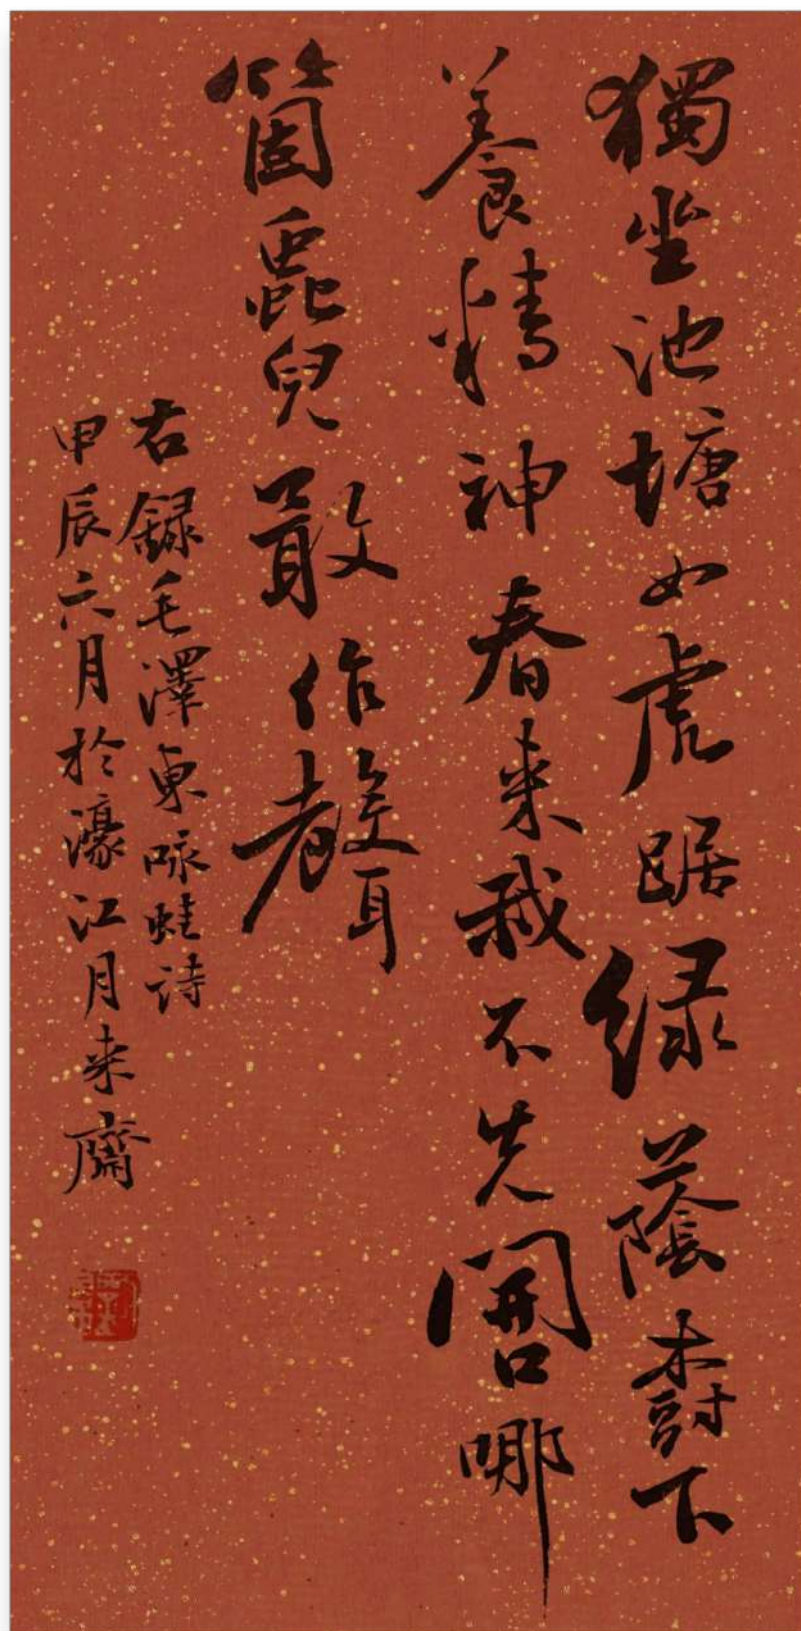 獨坐池塘如虎踞綠蔭樹下
養精神春來我不先開口哪
箇蟲兒敢作聲
右録毛澤東咏蛙詩
甲辰六月於濠江月來齋